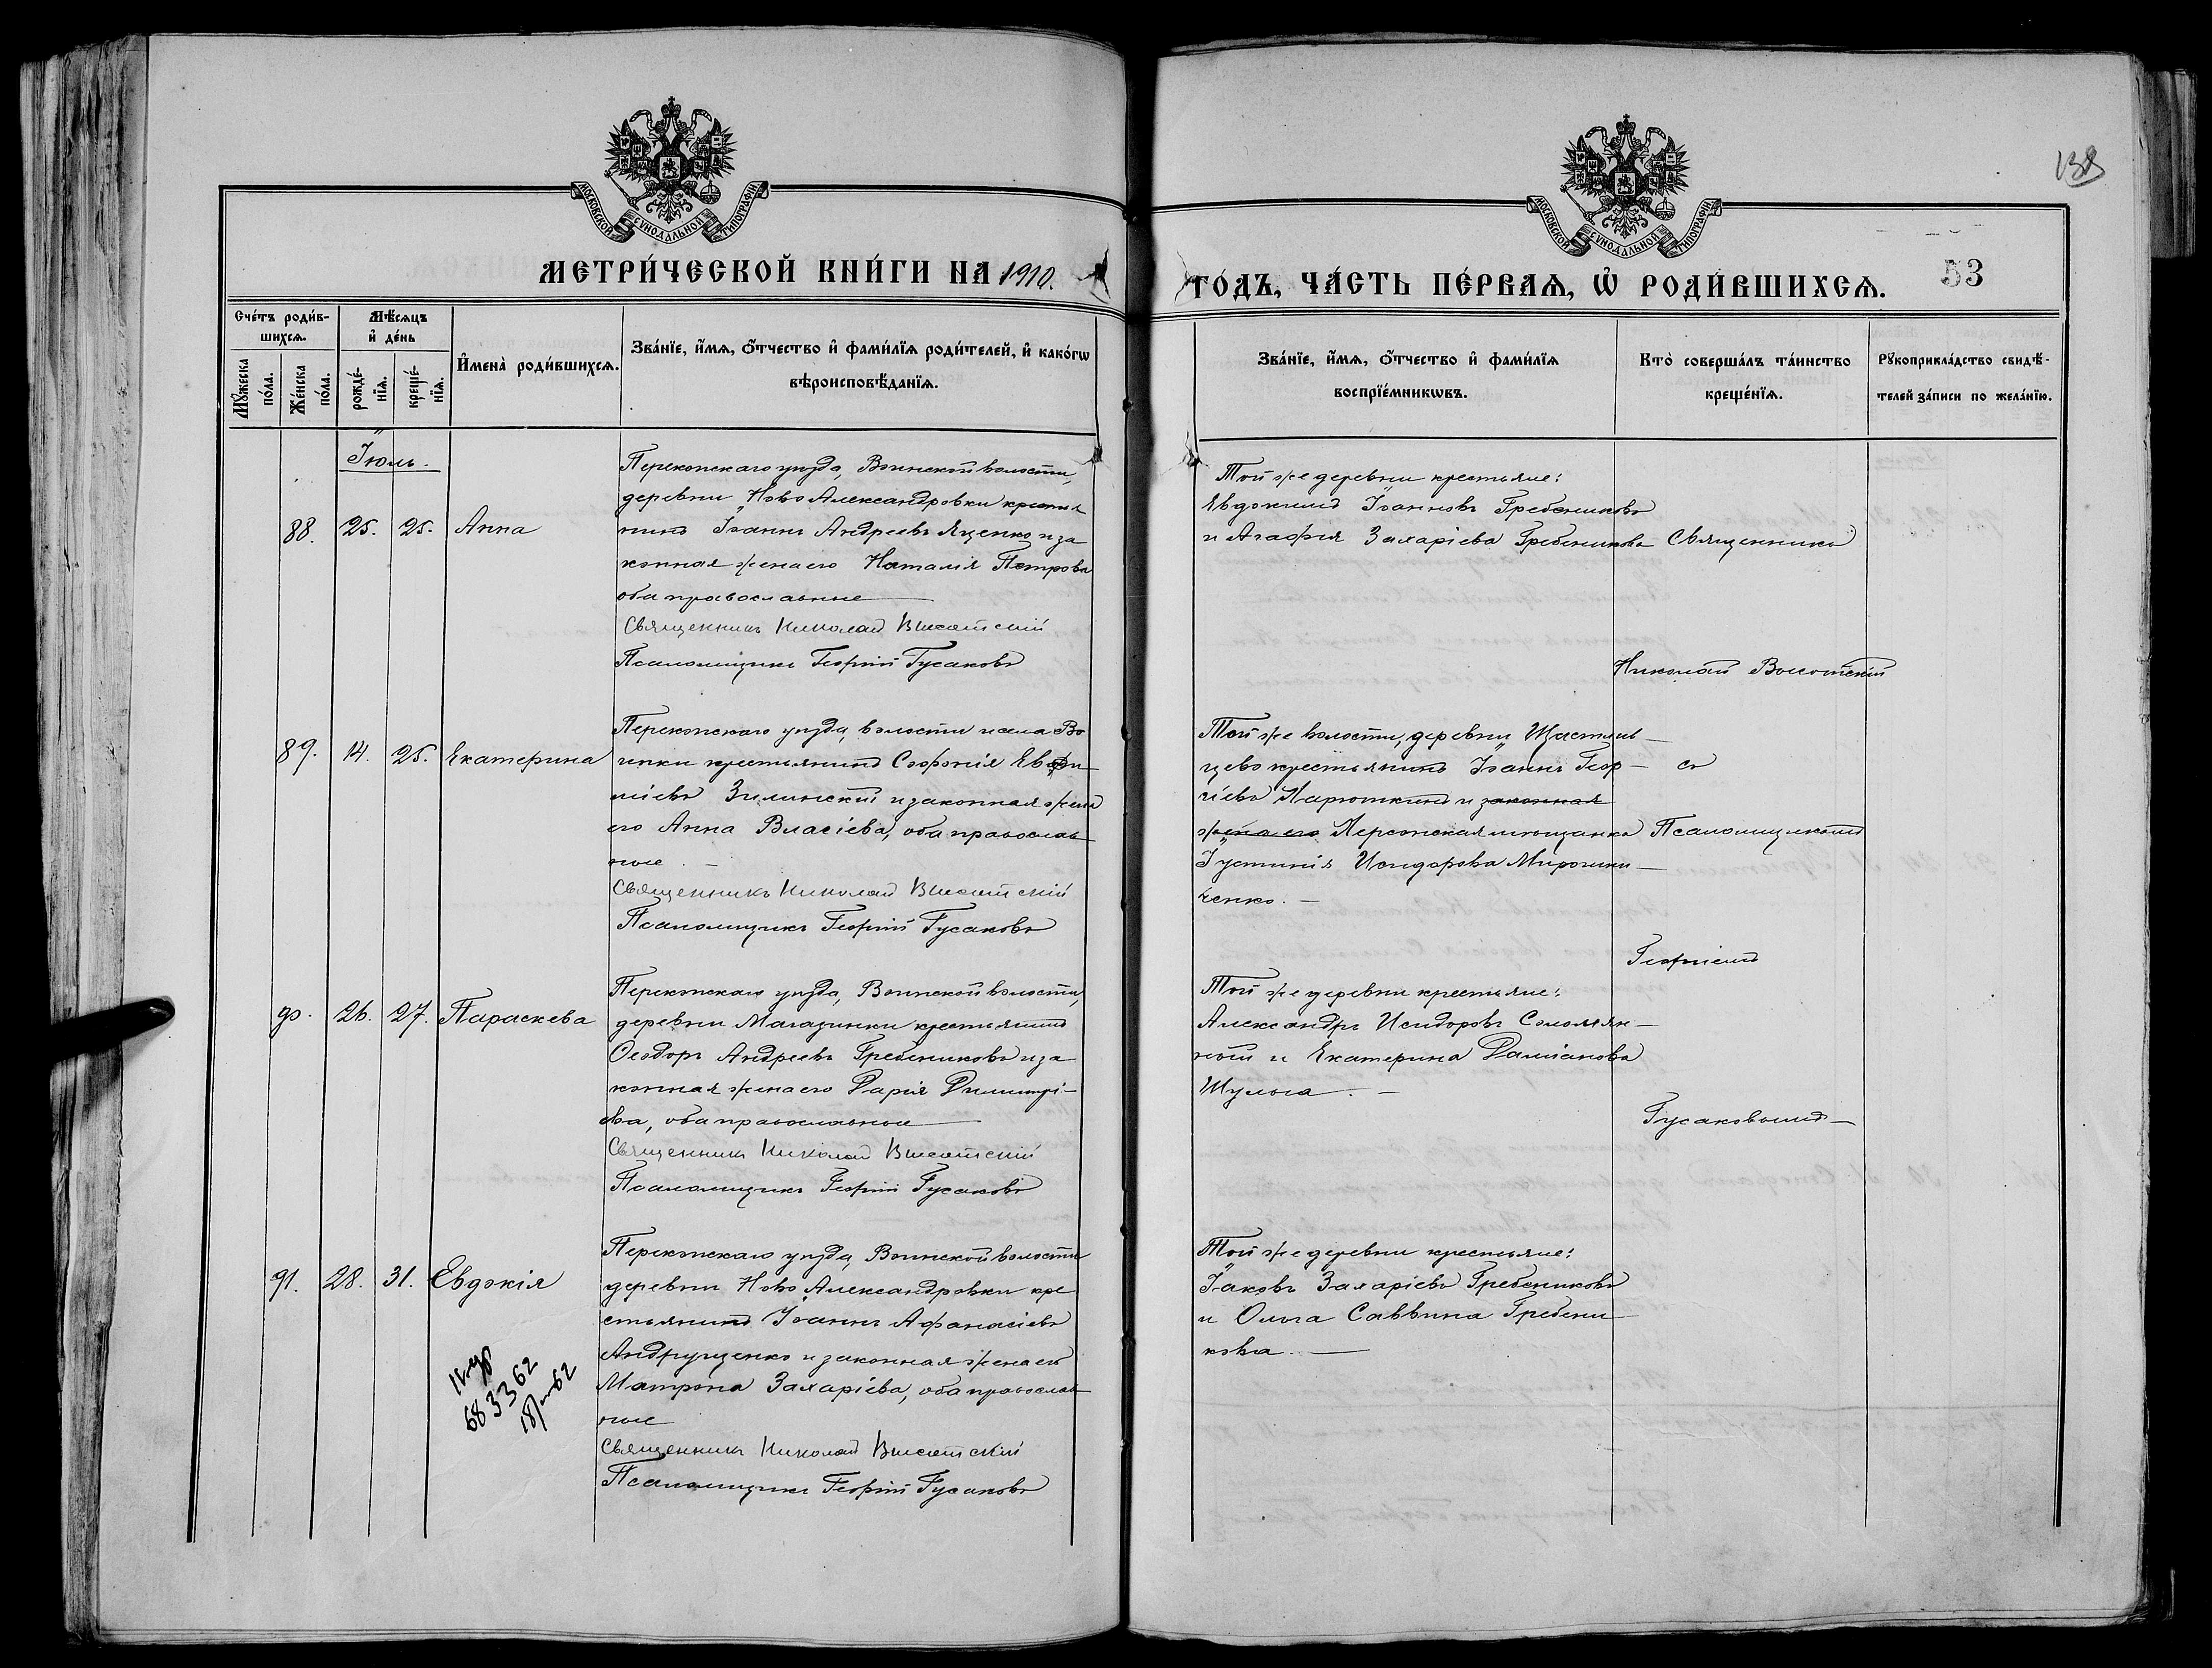 138
МОСКОВСКОЙ СУНОДАЛЬНОЙ ТИПОГРАФІИ
МОСКОВСКОЙ СУНОДАЛЬНОЙ ТИПОГРАФІИ
МЕТРИ́ЧЕСКОЙ КНИ́ГИ НА 1910.
ГО́ДЪ, ЧА́СТЬ ПЕ́РВАѦ, Ѡ҆ РОДИ́ВШИХСѦ. 53
Сче́тъ роди́в-
шихсѧ.
Мꙋ́жеска
по́ла.
Же́нска
по́ла.
Мѣ́сѧцъ
и҆ де́нь
рожде́-
нїѧ.
креще́-
нїѧ.
И҆мена̀ роди́вшихсѧ.
Зва́нїе, и҆́мѧ, ѻ҆́тчество и҆ фами́лїѧ роди́телей, и҆ како́гѡ
вѣроисповѣ́данїѧ.
Зва́нїе, и҆́мѧ, ѻ҆́тчество и҆ фами́лїѧ
воспрїе́мникѡвъ.
Кто̀ соверша́лъ та́инство
креще́нїѧ.
Рꙋкоприкла́дство свидѣ́-
телей за́писи по жела́нїю.
Іюль.
88. 25. 25. Анна
Перекопскаго уѣзда, Воинской волости,
деревни Ново Александровки крестья
нинъ Іоаннъ Андреевъ Яценко и за
конная жена его Наталія Петрова
оба православные
Священникъ Николай Высотскій
Псаломщикъ Георгій Гусаковъ
Той же деревни крестьяне:
Евдокимъ Іоанновъ Гребениковъ
и Агафія Захаріева Гребеникова
Священникъ
Николай Высотскій
89. 14. 25. Екатерина
Перекопскаго уѣзда, волости и села Во
инки крестьянинъ Софонія Евфи
міевъ Зилинскій и законная жена
его Анна Власіева, оба православ
ные. —
Священникъ Николай Высотскій
Псаломщикъ Георгій Гусаковъ
Той же волости, деревни Щастлив
цево крестьянинъ Іоаннъ Геор
гіевъ и законная
жена его Херсонская мѣщанка
Іустинія Исидорова Мирошни
ченко. —
съ
Псаломщикомъ
Георгіемъ
90. 26. 27. Параскева
Перекопскаго уѣзда, Воинской волости,
деревни Магазинки крестьянинъ
Ѳеодоръ Андреевъ Гребениковъ и за
конная жена его Дарія Димитрі-
ева, оба православные
Священникъ Николай Высотскій
Псаломщикъ Георгій Гусаковъ
Той же деревни крестьяне:
Александръ Исидоровъ Соломян-
ный и Екатерина Даміанова
Шульга. —
Гусаковымъ
91. 28. 31. Евдокія
Перекопскаго уѣзда, Воинской волости
деревни Ново Александровки кре
стьянинъ Іоаннъ Афанасіевъ
Андрущенко и законная жена его
Матрона Захаріева, оба православ
ные
Священникъ Николай Высотскій
Псаломщикъ Георгій Гусаковъ
Той же деревни крестьяне:
Іаковъ Захаріевъ Гребениковъ
и Ольга Саввина Гребени
кова. —
683362